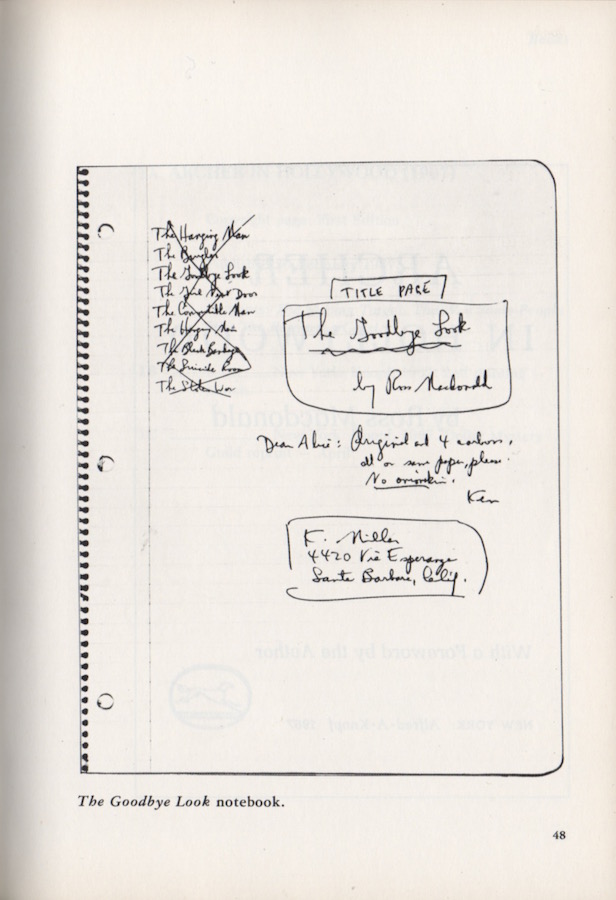 The Hanging Man
The Burglar
The Goodbye Look
The Girl Next Door
The Convertible Man
The Hungry Man
The Black Bandage
The Suicide Room
The Stolen War
TITLE PAGE
The Goodbye Look
by Ross Macdonald
Dear Alice: Original and 4 carbons,
all on same paper, please.
No onionskin.
Ken
K. Millar
4420 Via Esperanza
Santa Barbara, Calif.
The Goodbye Look notebook.
48